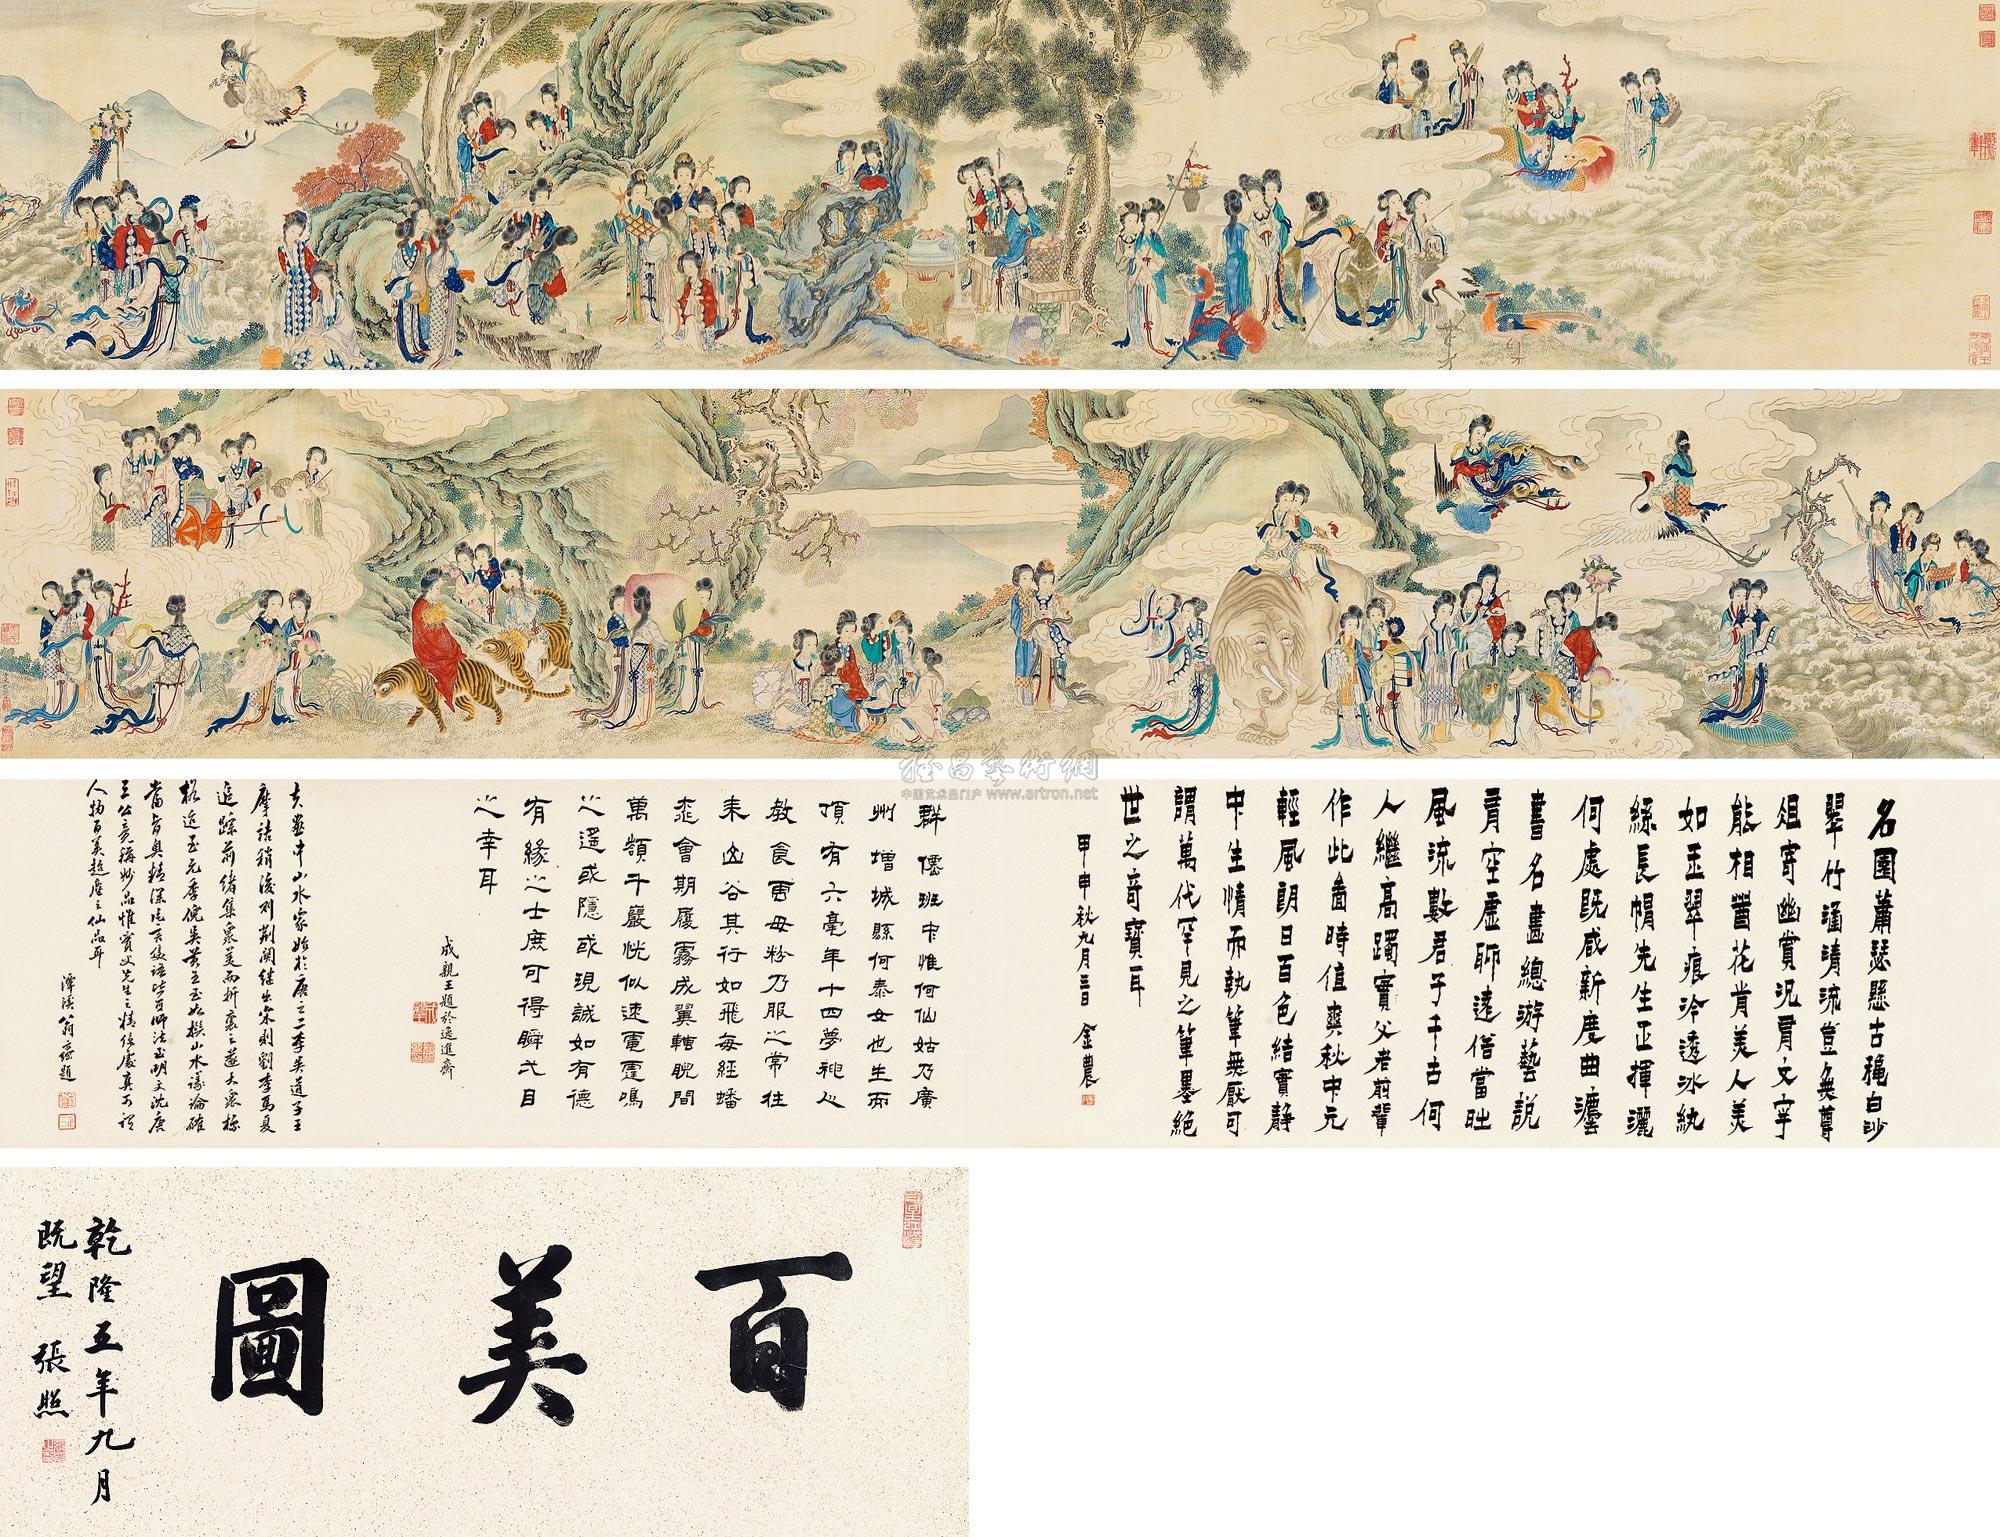 名園蕭瑟懸古穐白沙
翠竹涵清流豈無尊
俎寄幽賞況肩文字
能相嘗花肯美人美
如玉翠痕泠透冰紈
絲長幗先生正揮灑
何處既咸新度曲
書名畫總游藝說
肩空虛聊遠俗當
風流數君子千古何
人繼高躅實父老前輩
作此畵時值爽秋中元
輕風朗日百色結實靜
中生情而執筆無厭可
謂萬代罕見之筆墨絕
世之奇寶耳
甲申秋九月三日 金農
群僊班中惟何仙姑乃廣
州增城縣何泰女也生而
頂有六毫年十四夢神人
教食雲母粉乃服之常往
来山谷其行如飛每經蟠
桃會期履霧成翼轄睨間
萬顡千巖恍似速電霆鳴
之遙或隱或現誠如有德
有緣之士庶可得瞬弌目
之幸耳
成親王題於逸進齋
古畫中山水家始於唐之二李吳道子王
摩詰稍後則荊關継出宋則劉李馬夏
追踪前緒集衆美而折衷之遂大家標
格迨至元季倪吳黃王至於山水議論確
當旨奧精深片言隻語皆可師法至明文沈唐
三公竟稱妙品惟實父先生之精係處真可謂
人物百美超塵之仙品耳
潭溪翁題
百美圖
乾隆五年九月
既望 張照
中国艺术品门户 www.artron.net